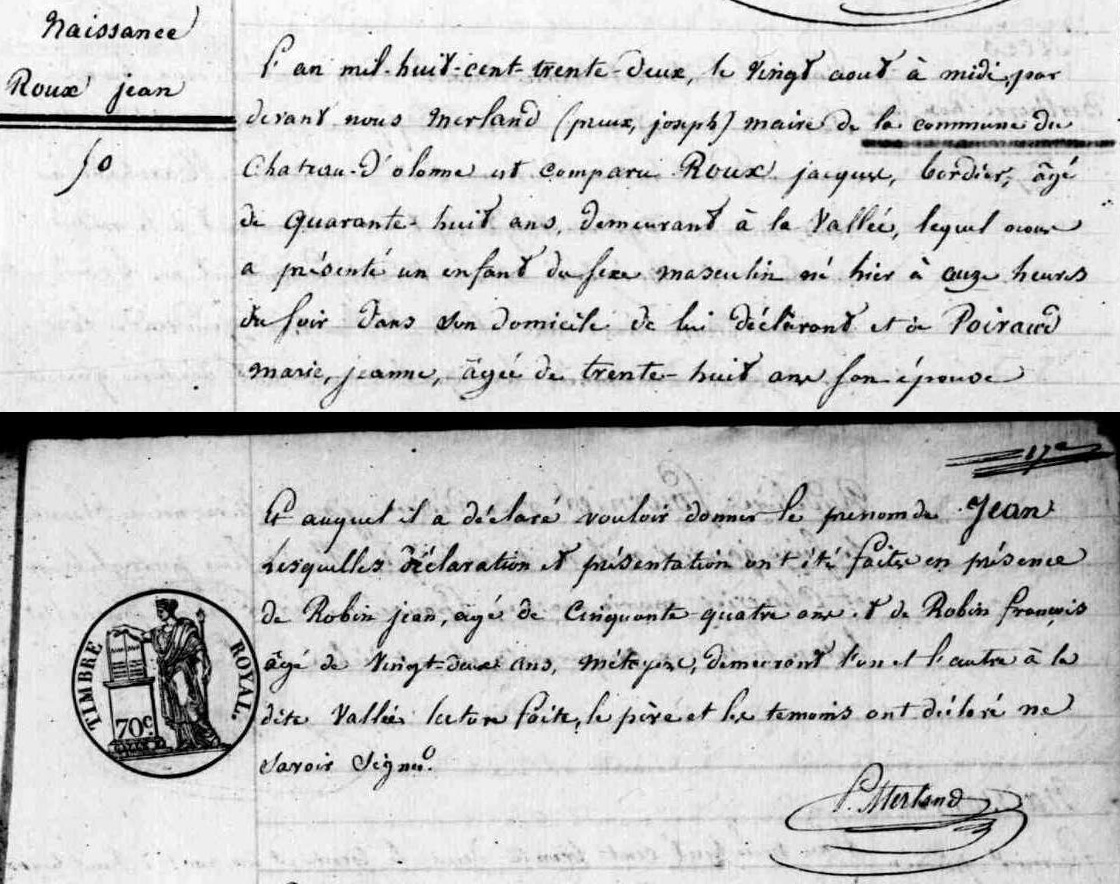 Naissance
Roux jean
50
L'an mil-huit-cent-trente-deux, le vingt aout à midi, par
devant nous Merland (preux, joseph) maire de la commune du
Chateau-d'olonne est comparu Roux jacques, bordier, âgé
de quarante-huit ans, demeurant à la Vallée, lequel nous
a présenté un enfant du sexe masculin né hier à onze heures
du soir dans son domicile de lui déclarant et de Poiraud
marie, jeanne, âgée de trente-huit ans son épouse
17e
Et auquel il a déclaré vouloir donner le prenom de Jean
Lesquelles déclaration et présentation ont été faites en présence
de Robin jean, agé de Cinquante-quatre ans et de Robin françois
âgé de Vingt-deux ans, métayers, demeurant l'un et l'autre à la
dite Vallée lecture faite, le père et les temoins ont déclaré ne
savoir signer.
P. Merland
TIMBRE ROYAL.
70c